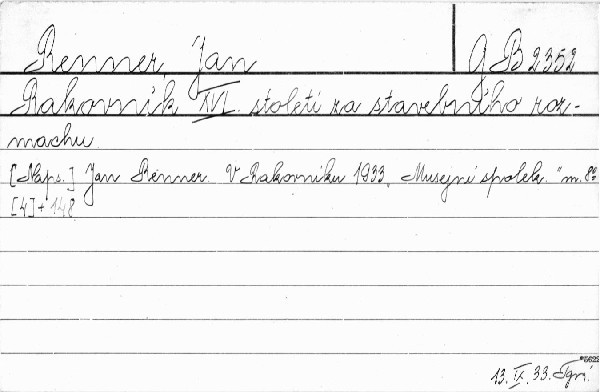 Renner, Jan
G B 2352
Rakovník XVI. století za stavebního roz-
machu.
[Naps.] Jan Renner. V Rakovníku 1933. Musejní spolek. m. 8°
[4] + 148
13. IX. 33.